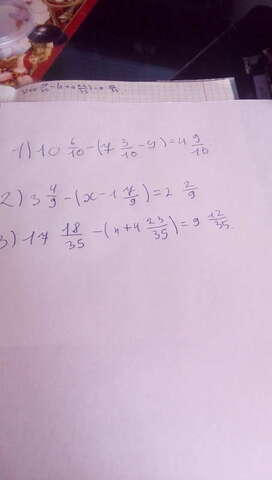 1) 10 6/10 - (7 3/10 - y) = 4 9/10
2) 3 4/9 - (x - 1 7/9) = 2 2/9
3) 17 18/35 - (n + 4 23/35) = 9 12/35